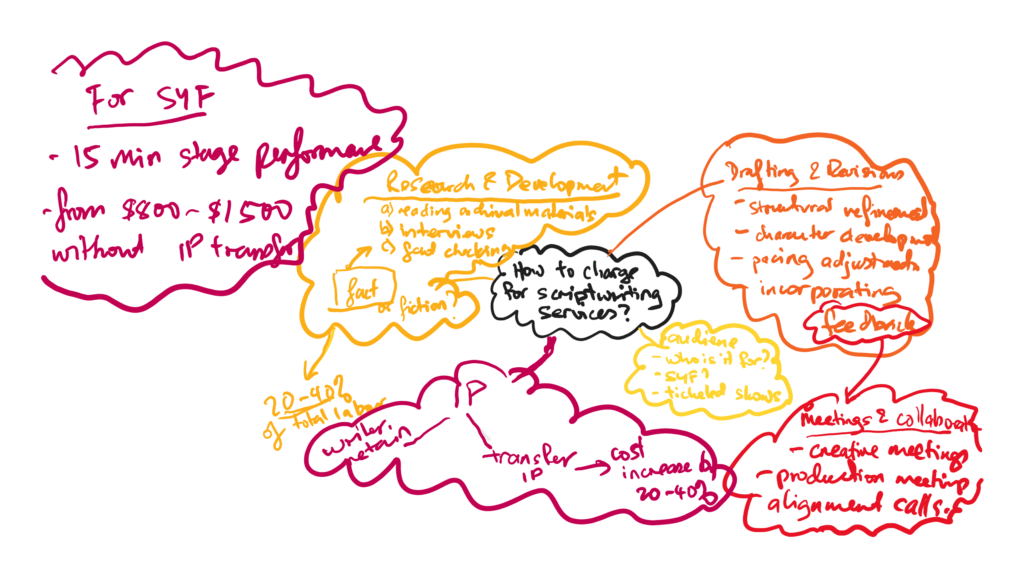 For SYF
- 15 min stage performance
- from $800 - $1500
without IP transfer
Research & Development
a) reading archival materials
b) interviews
c) fact checking
fact
or fiction?
20-40%
of total labour
How to charge
for scriptwriting
services?
Drafting & Revisions
- structural refinement
- character development
- pacing adjustments
incorporating
feedback
audience
- who is it for?
- SYF?
- ticketed shows
IP
writer
retain
transfer
IP
cost
increase by
20-40%
Meetings & collaborate
- creative meetings
- production meetings
alignment calls.